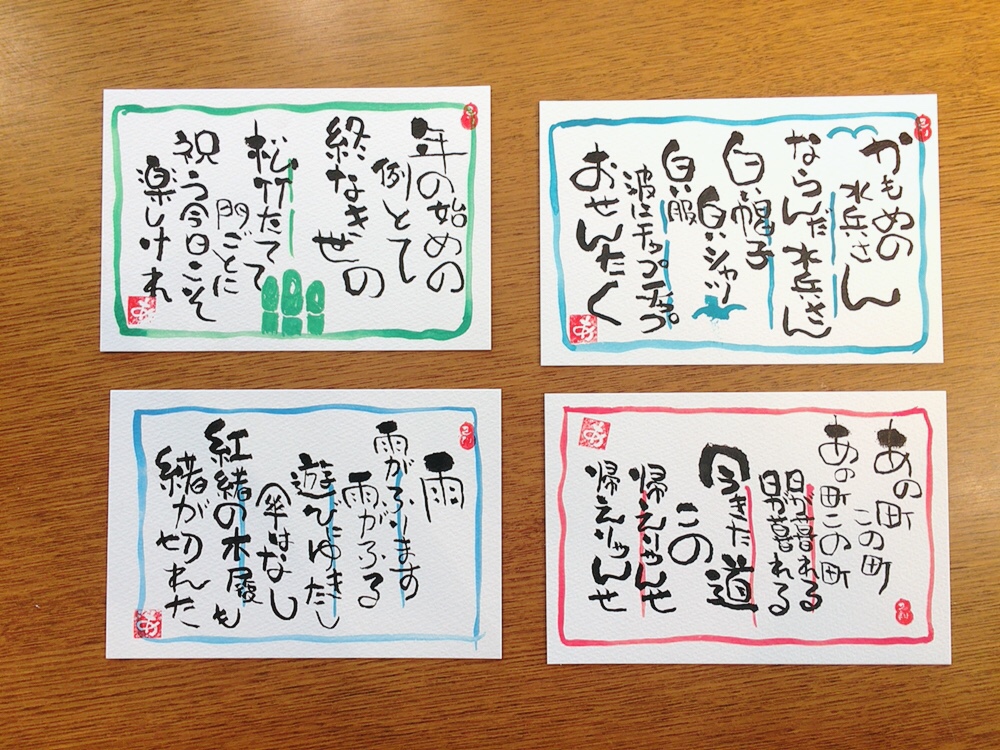 年の始めの
例とて
終なきせの
松竹たてて
門ごとに
祝う今日こそ
楽しけれ
かもめの
水兵さん
ならんだ水兵さん
白い帽子
白いシャツ
白い服
波にチャップチャップ
おせんたく
雨
雨がふります
雨がふる
遊びにゆきたし
傘はなし
紅緒の木履も
緒が切れた
あの町
この町
あの町この町
日が暮れる
日が暮れる
今きた道
この
帰えりゃんせ
帰えりゃんせ